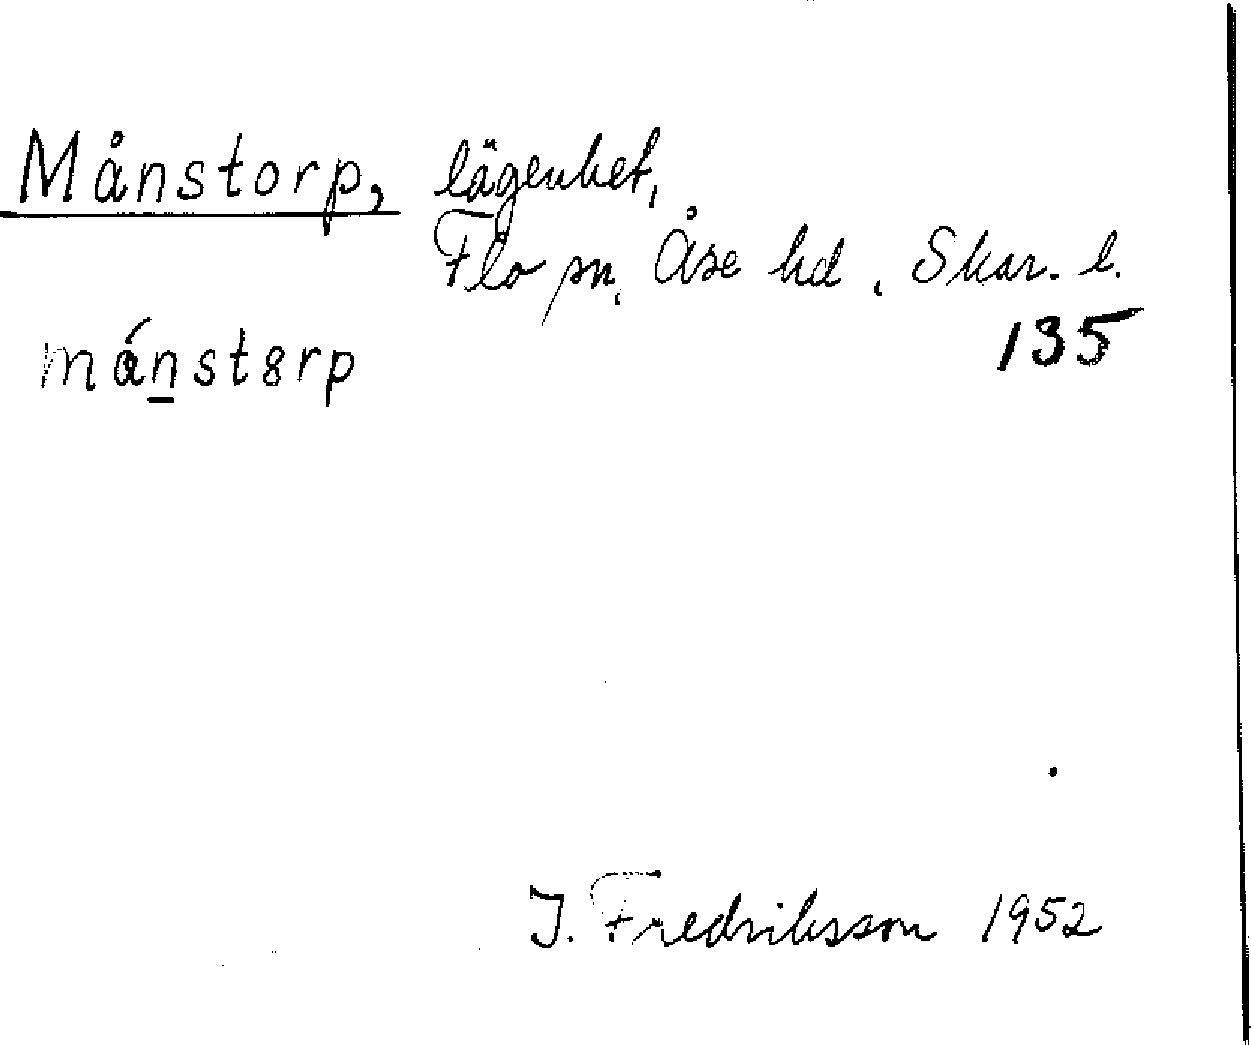 Månstorp, lägenhet,
Flo sn, Åse hd, Skar. l.
135
månst8rp
J. Fredriksson 1952